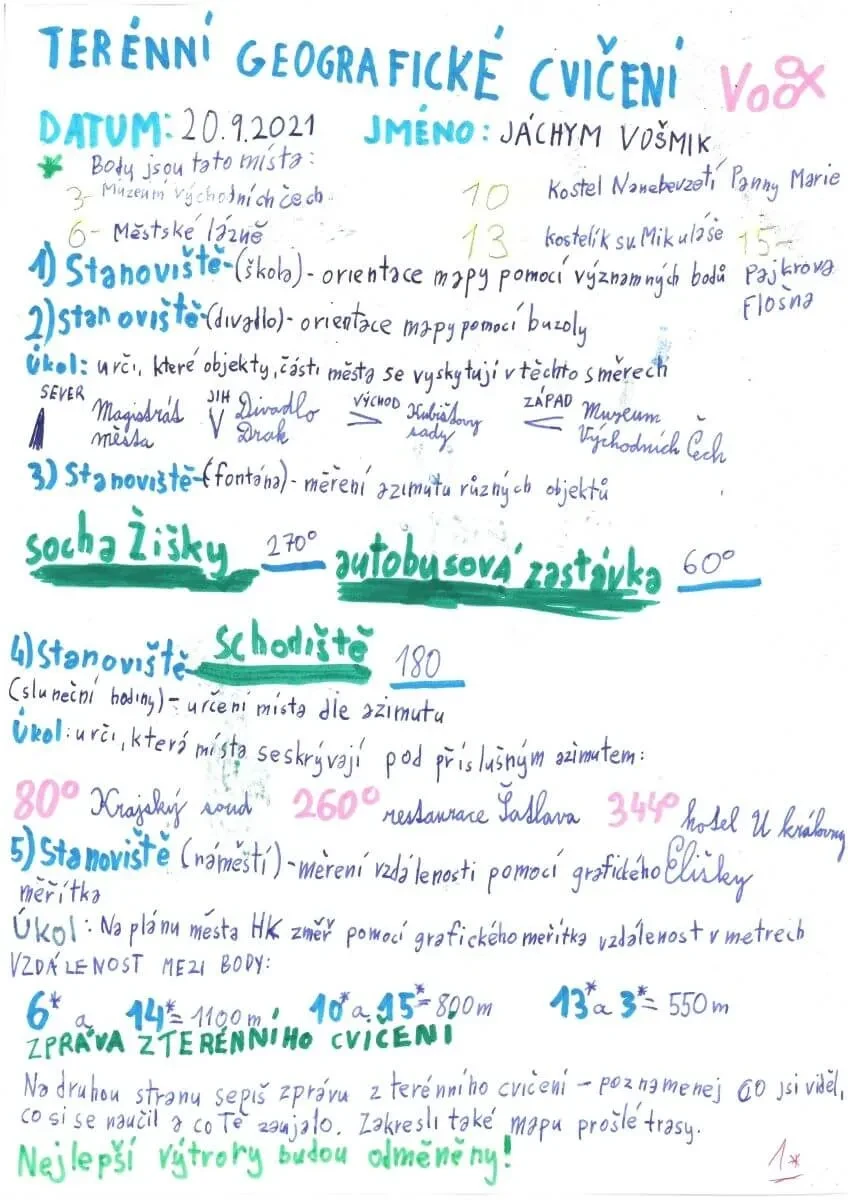 TERÉNNÍ GEOGRAFICKÉ CVIČENÍ
DATUM: 20.9.2021 JMÉNO: JÁCHYM VOŠMIK
* Body jsou tato místa:
3- Múzeum východních čech 10 Kostel Nanebevzetí Panny Marie
6- Městské lázně 13 kostelík sv. Mikuláše 15- Pajkrova Flošna
1) Stanoviště-(škola)- orientace mapy pomocí významných bodů
2) Stanoviště-(divadlo)- orientace mapy pomocí buzoly
Úkol: urči, které objekty, části města se vyskytují v těchto směrech
SEVER Magistrát města JIH Divadlo Drak VÝCHOD Kubištovy sady ZÁPAD Muzeum Východních Čech
3) Stanoviště-(fontána)- měření azimutu různých objektů
socha Žižky 270° autobusová zastávka 60°
Schodiště 180
4) Stanoviště
(sluneční hodiny)- určení místa dle azimutu
Úkol: urči, která místa se skrývají pod příslušným azimutem:
80° Krajský soud 260° restaurace Šatlava 344° hotel U královny Elišky
5) Stanoviště (náměstí)- měření vzdálenosti pomocí grafického
měřítka
Úkol: Na plánu města HK změř pomocí grafického meřítka vzdálenost v metrech
VZDÁLENOST MEZI BODY:
6* a 14*= 1100 m 10* a 15*= 800 m 13* a 3*= 550 m
ZPRÁVA Z TERÉNNÍHO CVIČENÍ
Na druhou stranu sepiš zprávu z terénního cvičení – poznamenej co jsi viděl,
co si se naučil a co Tě zaujalo. Zakresli také mapu prošlé trasy.
Nejlepší výtrory budou odměněny!
1*